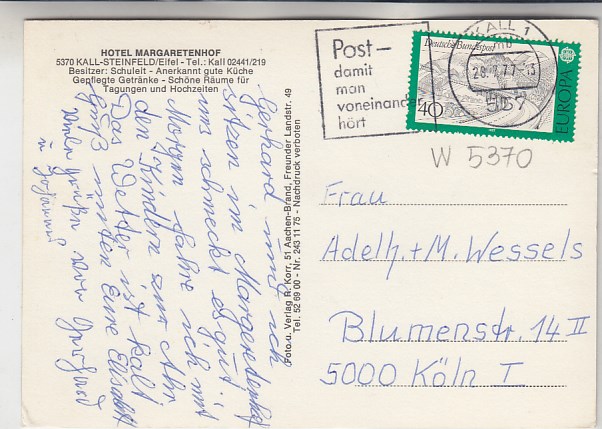 HOTEL MARGARETENHOF
5370 KALL-STEINFELD/Eifel - Tel.: Kall 02441/219
Besitzer: Schuleit - Anerkannt gute Küche
Gepflegte Getränke - Schöne Räume für
Tagungen und Hochzeiten
Gerhard und ich
sitzen im Margaretenhof
uns schmeckt es gut.
Morgen fahre ich mit
den Kindern zur Ahr
Das Wetter ist kalt
Gruß
Foto u. Verlag R. Korr, 51 Aachen-Brand, Freunder Landstr. 49
Tel. 52 69 00 - Nr. 243 11 75 - Nachdruck verboten
Post-
damit
man
voneinander
hört
KALL 1
537
Deutsche Bundespost
40
EUROPA
W 5370
Frau
Adelh.+M. Wessels
Blumenstr. 14 II
5000 Köln I